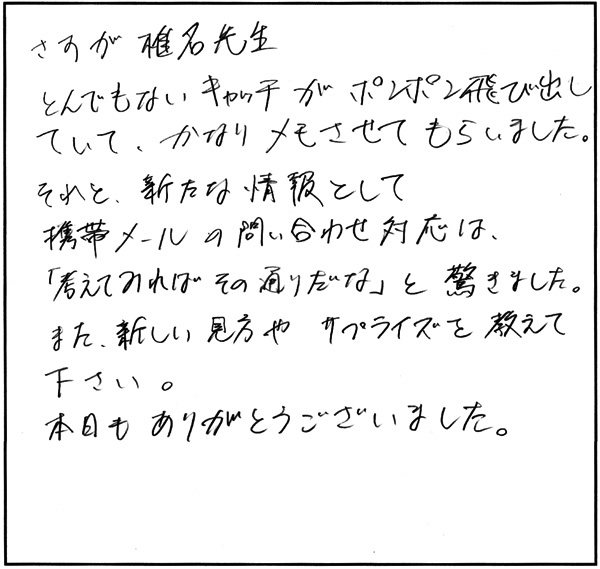 さすが 椎名先生
とんでもない キャッチ が ポンポン飛び出し
ていて、かなり メモさせて もらいました。
それと、新たな 情報として
携帯メール の 問い合わせ 対応は、
「考えてみれば その通りだな」と 驚きました。
また、新しい 見方や サプライズを 教えて
下さい。
本日も ありがとうございました。